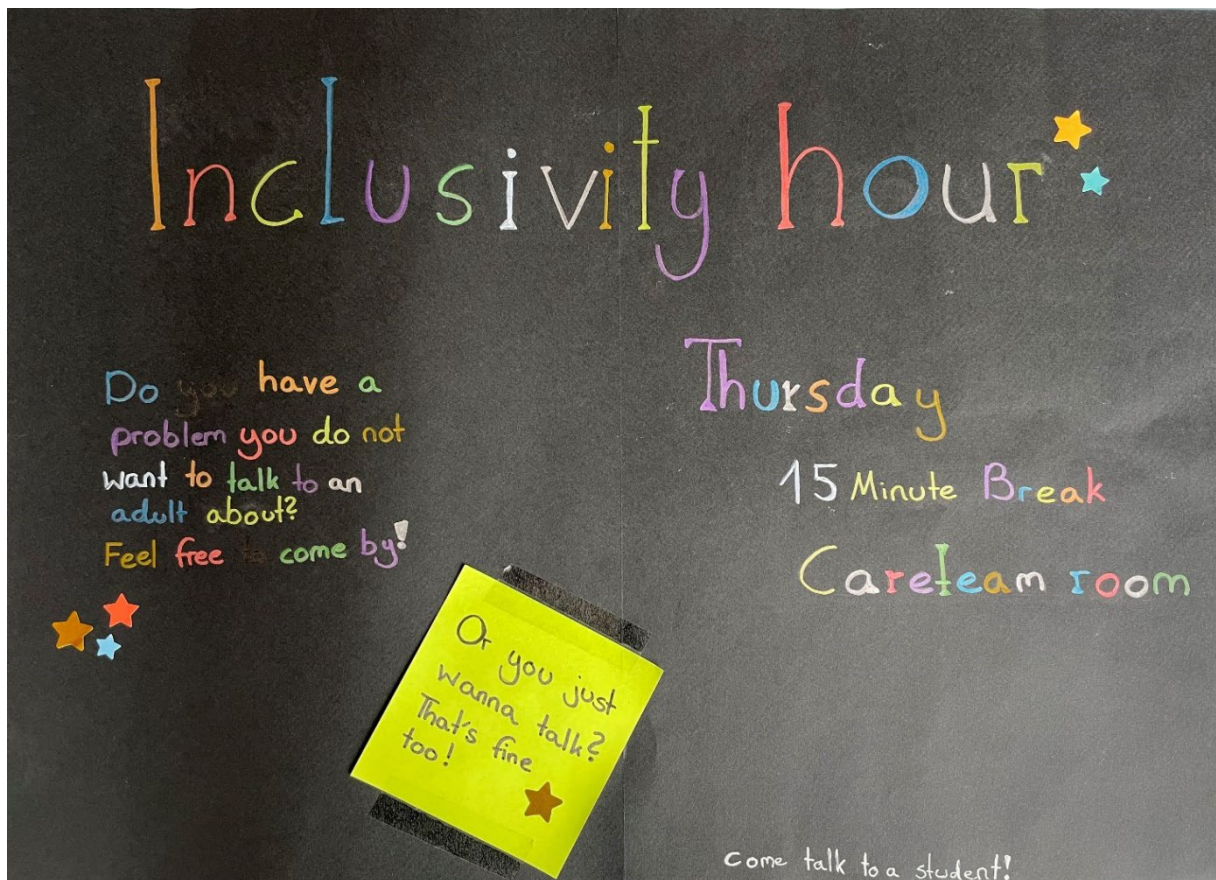 Inclusivity hour
Do you have a
problem you do not
want to talk to an
adult about?
Feel free to come by!
Thursday
15 Minute Break
Careteam room
Or you just
wanna talk?
That's fine
too!
Come talk to a student!